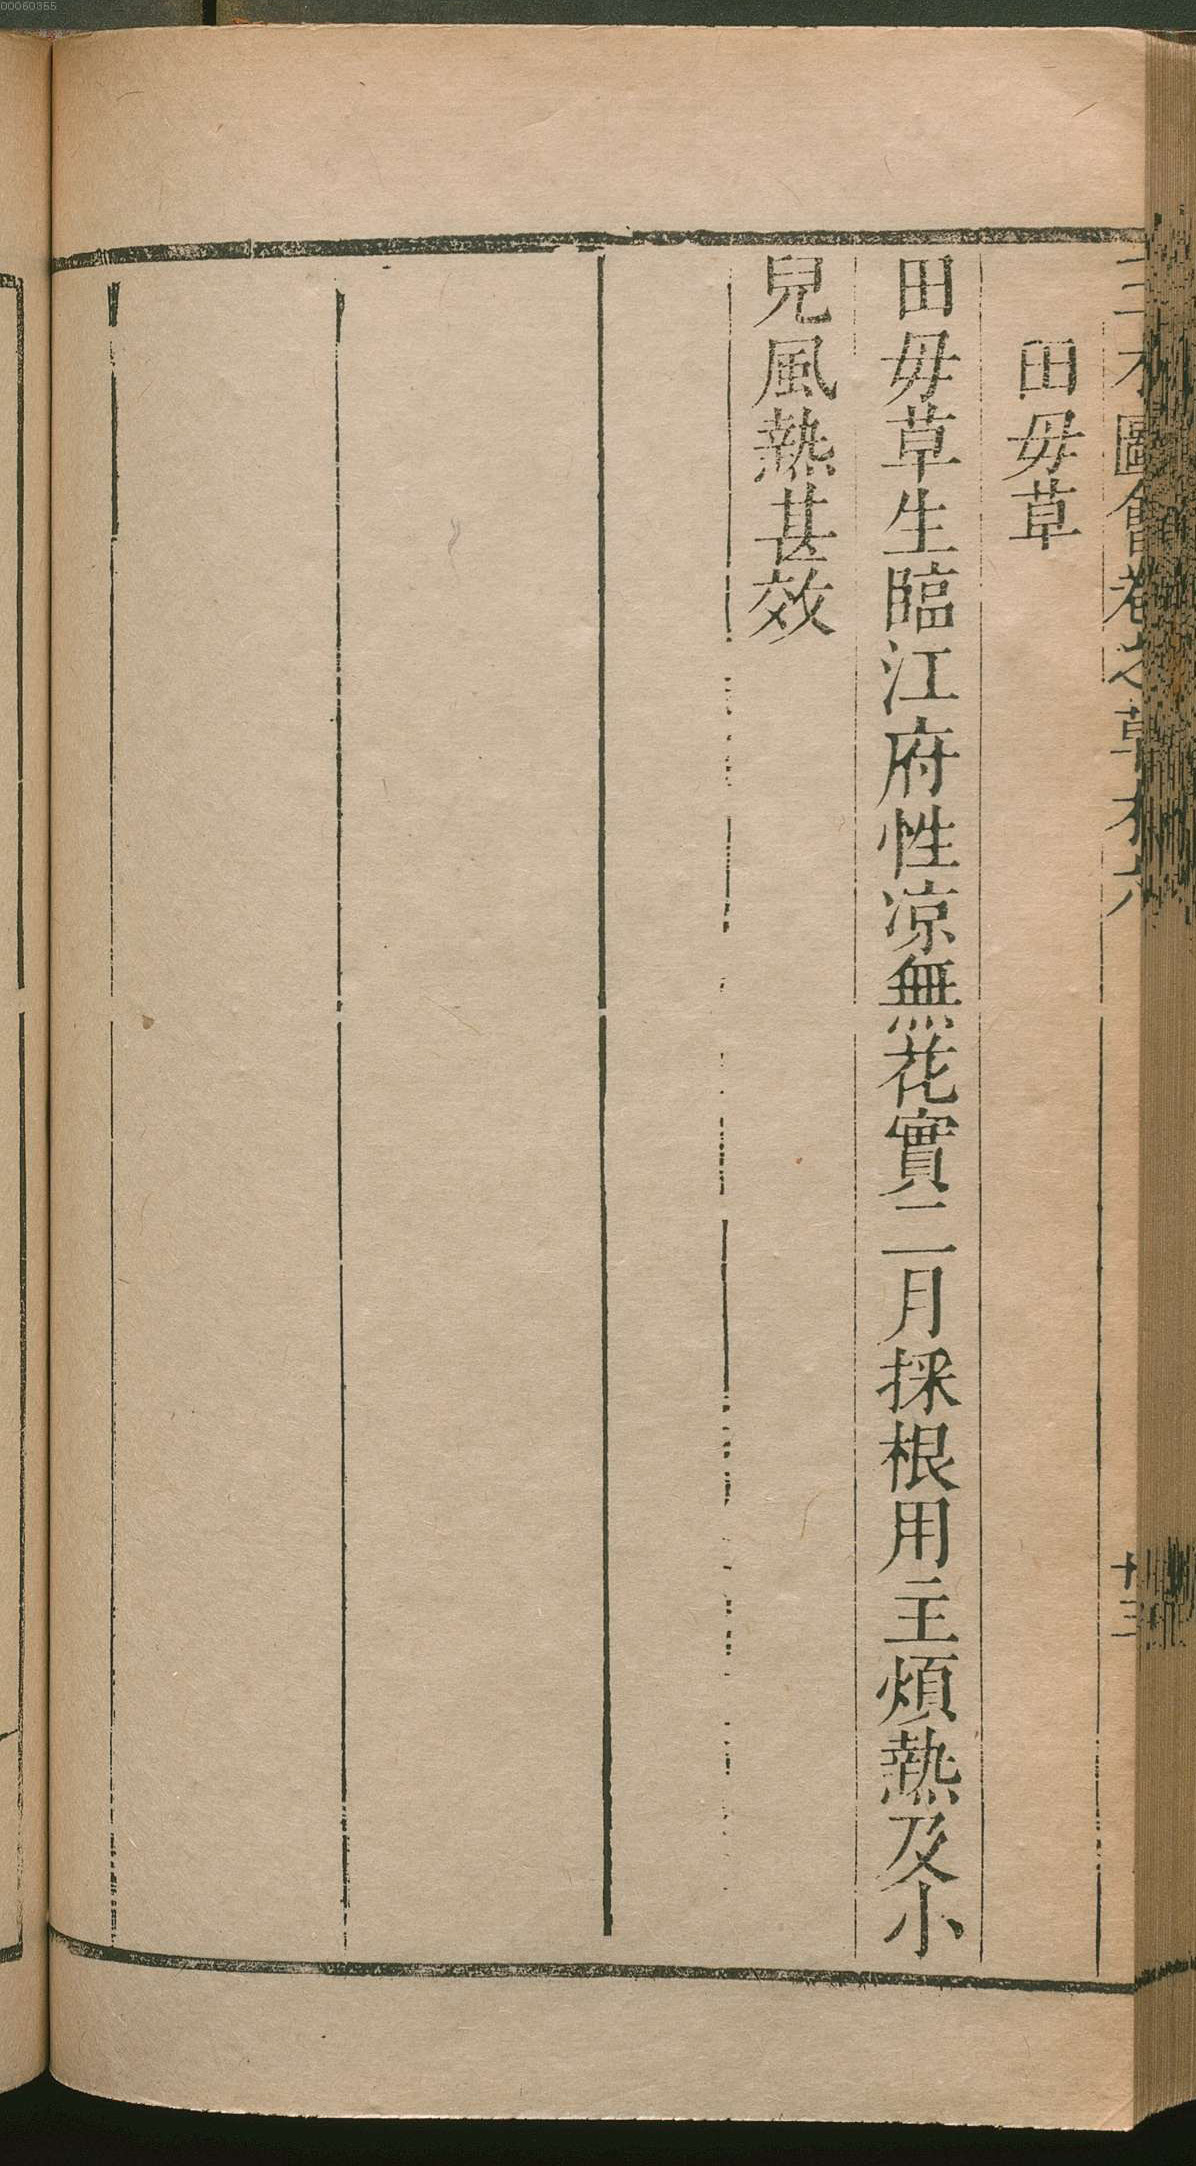 00060355
三才圖會卷之草木六
廿三
田毋草
田毋草生臨江府性凉無花實二月採根用主煩熱及小
兒風熱甚效